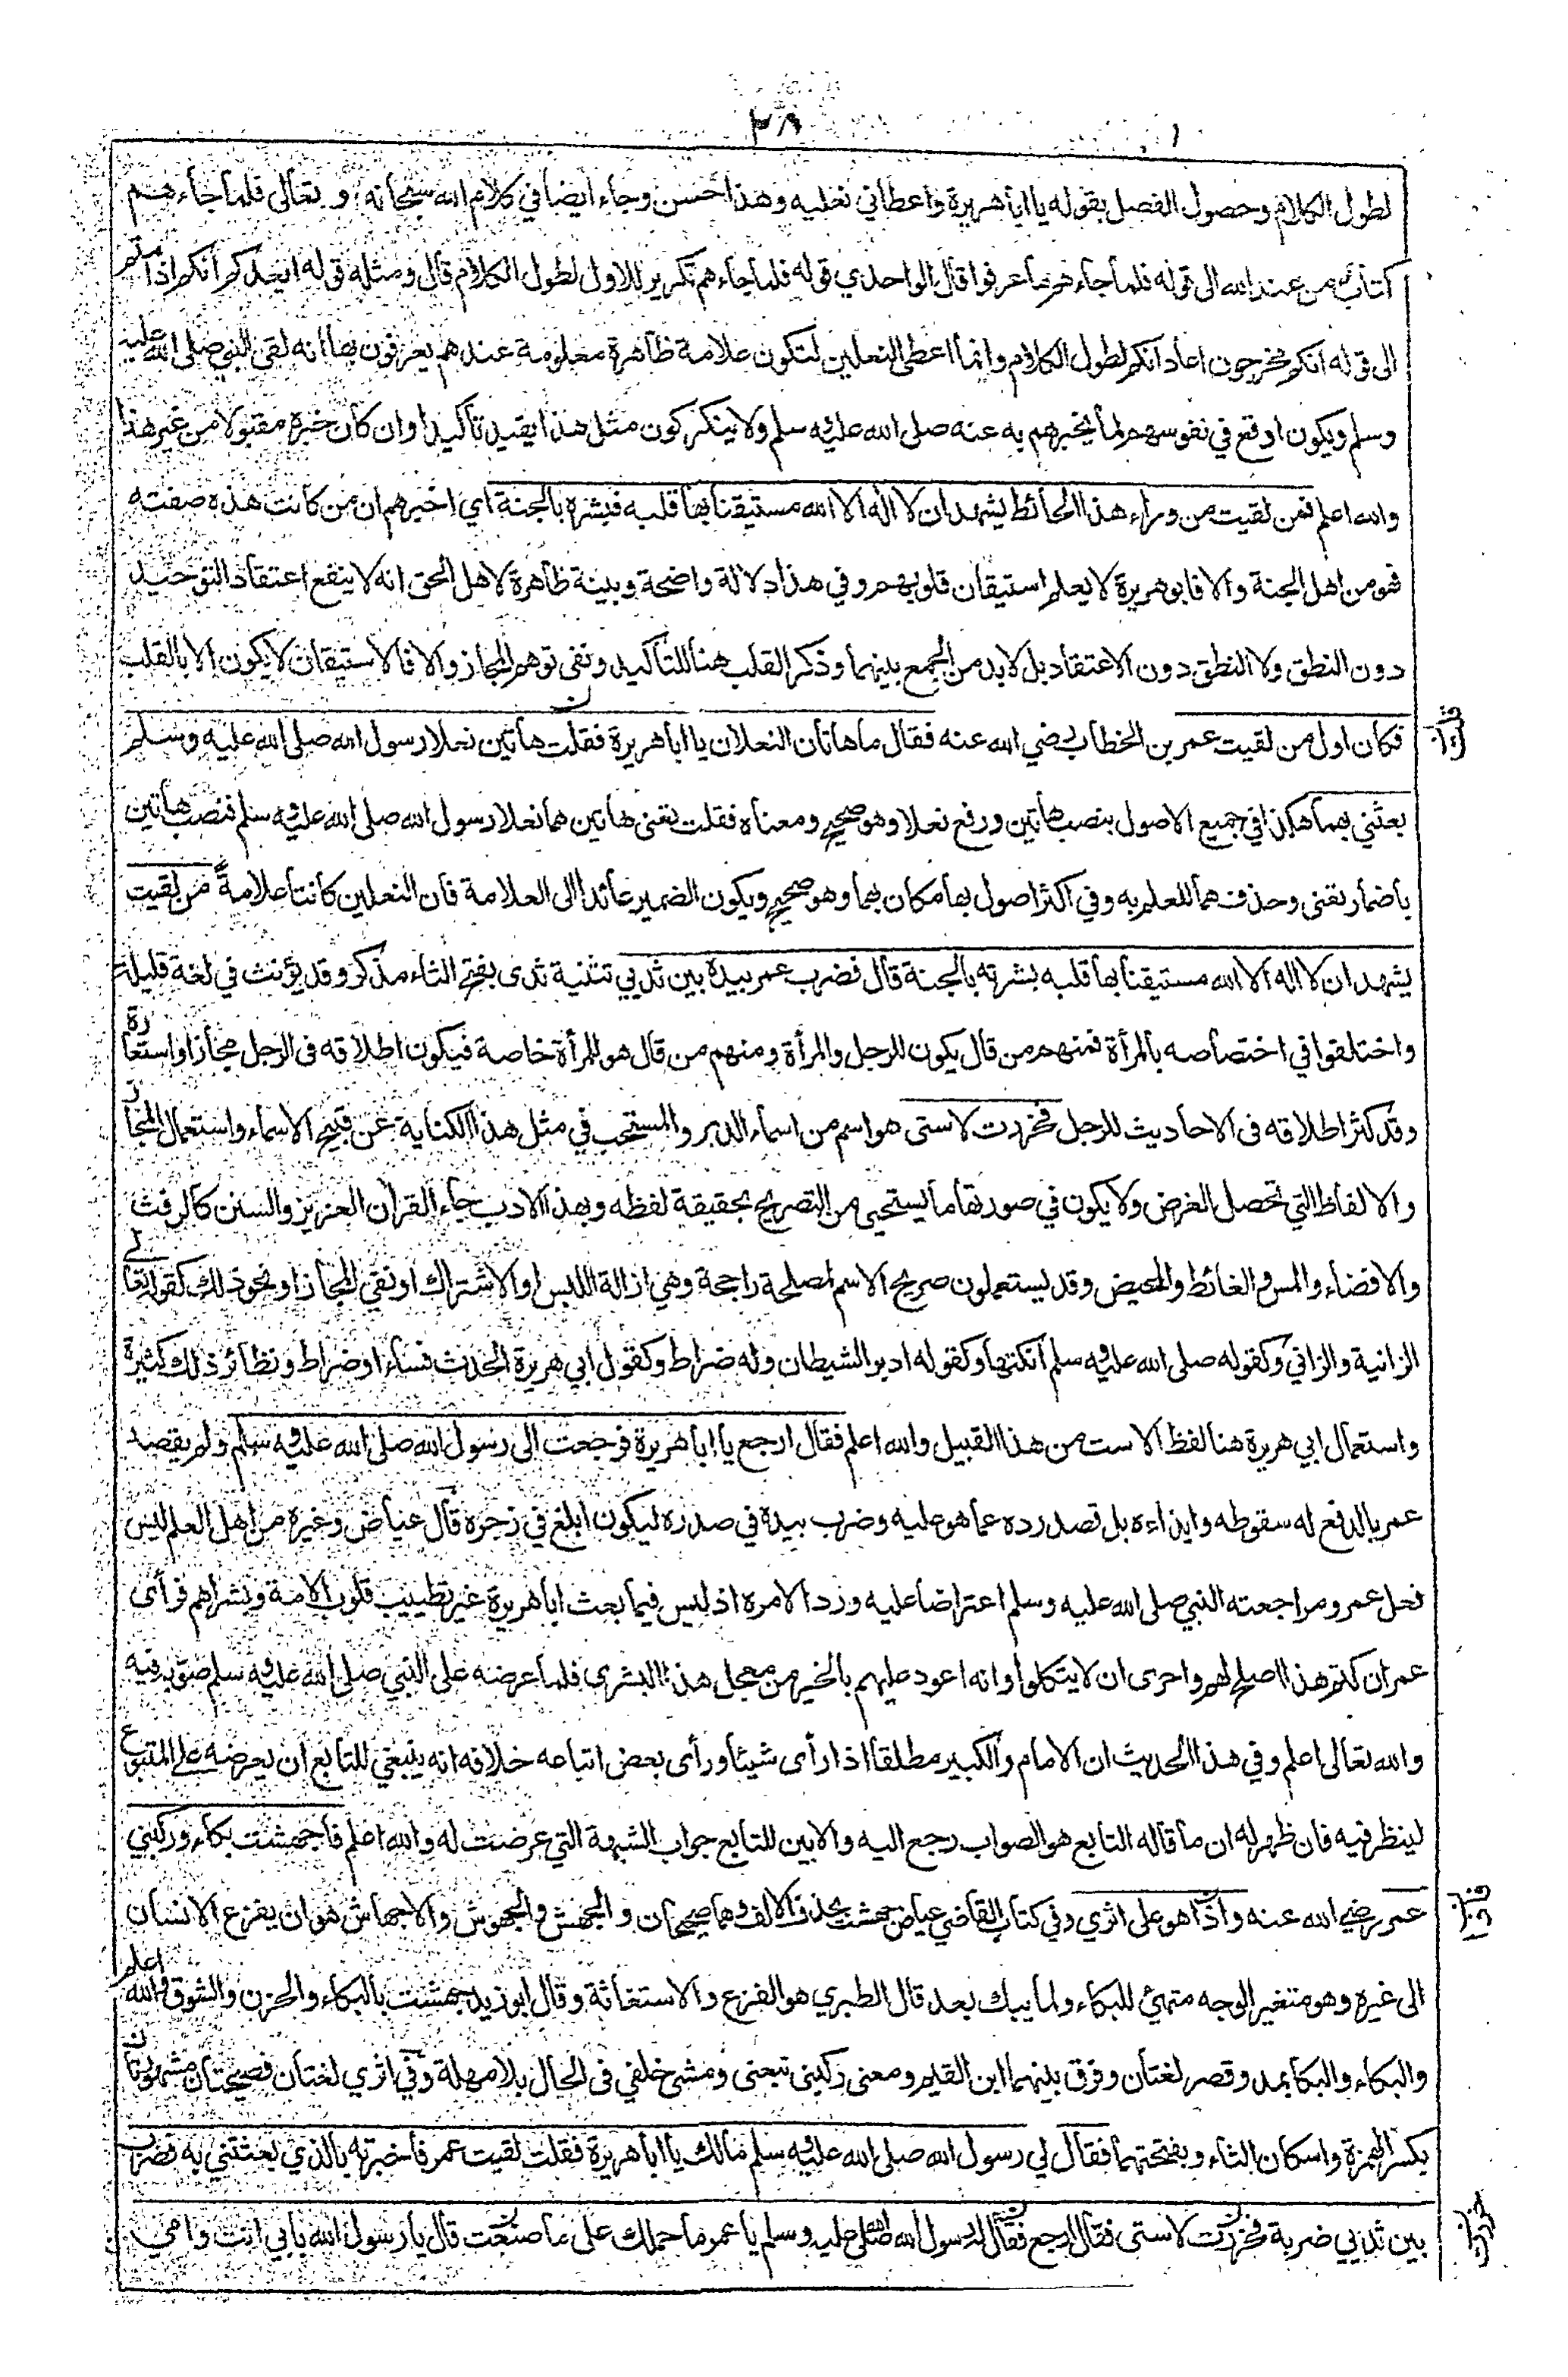 ٣٨
لطول الكلام وحصول الفصل بقوله يا ابا هريرة واعطاني نعليه وهذا احسن وجاء ايضا في كلام الله سبحانه و تعالى فلما جاءهم
كتاب من عند الله الى قوله فلما جاءهم ما عرفوا قال الواحدي قوله فلما جاءهم تكرير للاول لطول الكلام قال ومثله قوله ايعدكم انكم اذا متم
الى قوله انكم مخرجون اعاد انكم لطول الكلام وانما اعطى النعلين لتكون علامة ظاهرة معلومة عندهم يعرفون بها انه لقى النبي صلى الله عليه
وسلم ويكون اوقع في نفوسهم لما يخبرهم به عنه صلى الله عليه وسلم ولا ينكر كون مثل هذا يفيد تأكيدا وان كان خبره مقبولا من غير هذا
والله اعلم فمن لقيت من وراء هذا الحائط يشهد ان لا اله الا الله مستيقنا بها قلبه فبشره بالجنة اي اخبرهم ان من كانت هذه صفته
فهو من اهل الجنة والا فابو هريرة لا يعلم استيقان قلوبهم وفي هذا دلالة واضحة وبينة ظاهرة لاهل الحق انه لا ينفع اعتقاد التوحيد
دون النطق ولا النطق دون الاعتقاد بل لا بد من الجمع بينهما وذكر القلب هنا للتاكيد ونفى توهم المجاز والا فالاستيقان لا يكون الا بالقلب
فكان اول من لقيت عمر بن الخطاب رضي الله عنه فقال ما هاتان النعلان يا ابا هريرة فقلت هاتين نعلا رسول الله صلى الله عليه وسلم
بعثني بهما هكذا في جميع الاصول بنصب هاتين ورفع نعلا وهو صحيح ومعناه فقلت تعنى هاتين هما نعلا رسول الله صلى الله عليه وسلم فنصب هاتين
باضمار تعنى وحذف هما للعلم به وفي اكثر اصول بها مكان بهما وهو صحيح ويكون الضمير عائدا الى العلامة فان النعلين كانتا علامة من لقيت
يشهد ان لا اله الا الله مستيقنا بها قلبه بشرته بالجنة قال فضرب عمر بيده بين ثديي تثنية ثدى بفتح الثاء مذكر وقد يؤنث في لغة قليلة
واختلفوا في اختصاصه بالمرأة فمنهم من قال يكون للرجل والمرأة ومنهم من قال هو للمرأة خاصة فيكون اطلاقه في الرجل مجازا واستعارة
وقد كثر اطلاقه في الاحاديث للرجل فخررت لاستى هو اسم من اسماء الدبر والمستحب في مثل هذا الكناية عن قبيح الاسماء واستعمال المجاز
والالفاظ التي تحصل الغرض ولا يكون في صورتها ما يستحيى من التصريح بحقيقة لفظه وبهذا الادب جاء القرآن العزيز والسنن كالرفث
والافضاء والمس والغائط والمحيض وقد يستعملون صريح الاسم لمصلحة راجحة وهي ازالة اللبس او الاشتراك او نفى المجاز او نحو ذلك كقوله تعالى
الزانية والزاني وكقوله صلى الله عليه وسلم انكتها وكقوله ادبر الشيطان وله ضراط وكقول ابي هريرة الحدث فساء او ضراط ونظائر ذلك كثيرة
واستعمال ابي هريرة هنا لفظ الاست من هذا القبيل والله اعلم فقال ارجع يا ابا هريرة فرجعت الى رسول الله صلى الله عليه وسلم ولم يقصد
عمر بالدفع له سقوطه وايذاءه بل قصد رده عما هو عليه وضرب بيده في صدره ليكون ابلغ في زجره قال عياض وغيره من اهل العلم ليس
فعل عمر ومراجعته النبي صلى الله عليه وسلم اعتراضا عليه ورد الامره اذ ليس فيما بعث ابا هريرة غير تطييب قلوب الامة وبشراهم فرأى
عمر ان كتم هذا اصلح لهم واحرى ان لا يتكلوا وانه اعود عليهم بالخير من معجل هذا البشرى فلما عرضه على النبي صلى الله عليه وسلم صوبه فيه
والله تعالى اعلم وفي هذا الحديث ان الامام والكبير مطلقا اذا رأى شيئا ورأى بعض اتباعه خلافه انه ينبغي للتابع ان يعرضه على المتبوع
لينظر فيه فان ظهر له ان ما قاله التابع هو الصواب رجع اليه والا بين للتابع جواب الشبهة التي عرضت له والله اعلم فاجهشت بكاء وركبني
عمر رضي الله عنه واذا هو على اثري وفي كتاب القاضي عياض جهشت بحذف الالف وهما صحيحان والجهش والجهوش والاجهاش هو ان يفزع الانسان
الى غيره وهو متغير الوجه متهيئ للبكاء ولما يبك بعد قال الطبري هو الفزع والاستغاثة وقال ابو زيد جهشت بالبكاء والحزن والشوق والله اعلم
والبكاء والبكا بمد وقصر لغتان وفرق بينهما ابن القيم ومعنى ركبنى تبعنى ومشى خلفي في الحال بلا مهلة وفي اثري لغتان فصيحتان مشهورتان
بكسر الهمزة واسكان الثاء وبفتحتهما فقال لي رسول الله صلى الله عليه وسلم مالك يا ابا هريرة فقلت لقيت عمر فاخبرته بالذي بعثتني به فضرب
بين ثديي ضربة فخررت لاستى فقال ارجع فقال له رسول الله صلى الله عليه وسلم يا عمر ما حملك على ما صنعت قال يا رسول الله بابي انت وامي